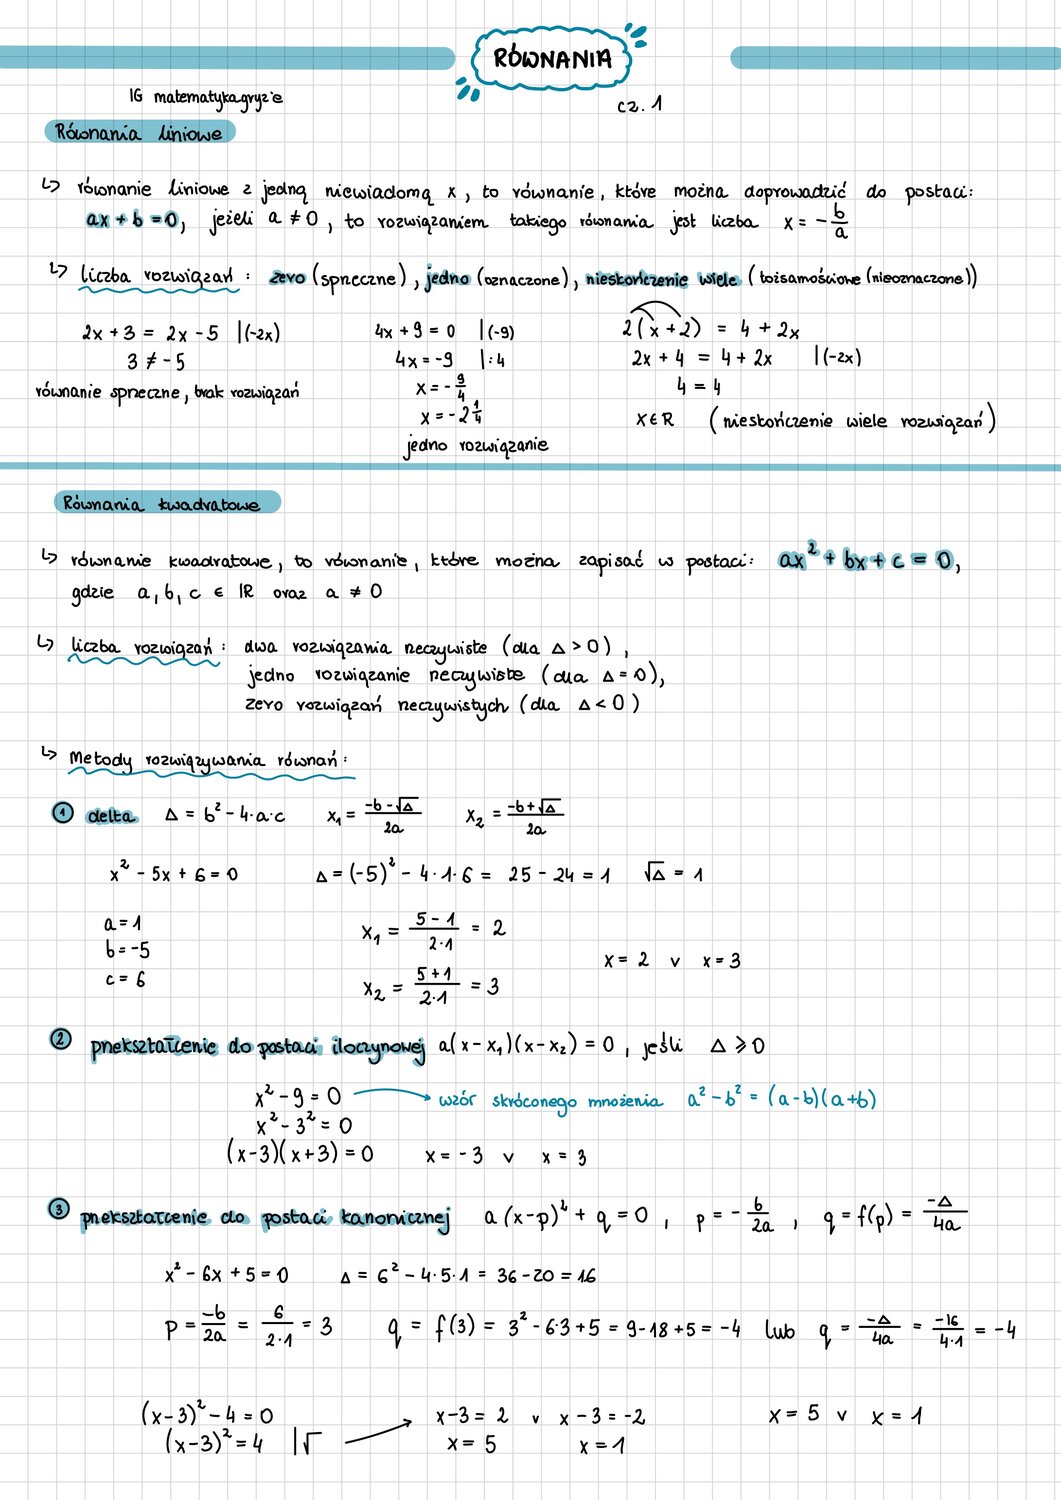 RÓWNANIA
IG matematykagryzie
cz. 1
Równania liniowe
↳ równanie liniowe z jedną niewiadomą x, to równanie, które można doprowadzić do postaci:
ax + b = 0, jeżeli a ≠ 0, to rozwiązaniem takiego równania jest liczba x = -b/a
↳ liczba rozwiązań: zero (sprzeczne), jedno (oznaczone), nieskończenie wiele (tożsamościowe (nieoznaczone))
2x + 3 = 2x - 5 |(-2x)
3 ≠ -5
równanie sprzeczne, brak rozwiązań
4x + 9 = 0 |(-9)
4x = -9 |:4
x = -9/4
x = -2 1/4
jedno rozwiązanie
2(x + 2) = 4 + 2x
2x + 4 = 4 + 2x |(-2x)
4 = 4
x ∈ R (nieskończenie wiele rozwiązań)
Równania kwadratowe
↳ równanie kwadratowe, to równanie, które można zapisać w postaci: ax² + bx + c = 0,
gdzie a, b, c ∈ ℝ oraz a ≠ 0
↳ liczba rozwiązań: dwa rozwiązania rzeczywiste (dla Δ > 0),
jedno rozwiązanie rzeczywiste (dla Δ = 0),
zero rozwiązań rzeczywistych (dla Δ < 0)
↳ Metody rozwiązywania równań:
① delta Δ = b² - 4·a·c x₁ = (-b-√Δ)/2a x₂ = (-b+√Δ)/2a
x² - 5x + 6 = 0 Δ = (-5)² - 4·1·6 = 25 - 24 = 1 √Δ = 1
a = 1
b = -5
c = 6
x₁ = (5 - 1)/(2·1) = 2
x₂ = (5 + 1)/(2·1) = 3
x = 2 ∨ x = 3
② przekształcenie do postaci iloczynowej a(x - x₁)(x - x₂) = 0, jeśli Δ ⩾ 0
x² - 9 = 0 → wzór skróconego mnożenia a² - b² = (a - b)(a + b)
x² - 3² = 0
(x - 3)(x + 3) = 0 x = -3 ∨ x = 3
③ przekształcenie do postaci kanonicznej a(x - p)² + q = 0, p = -b/2a, q = f(p) = -Δ/4a
x² - 6x + 5 = 0 Δ = 6² - 4·5·1 = 36 - 20 = 16
p = -b/2a = 6/(2·1) = 3 q = f(3) = 3² - 6·3 + 5 = 9 - 18 + 5 = -4 lub q = -Δ/4a = -16/(4·1) = -4
(x - 3)² - 4 = 0
(x - 3)² = 4 |√ →
x - 3 = 2 ∨ x - 3 = -2
x = 5 x = 1
x = 5 ∨ x = 1